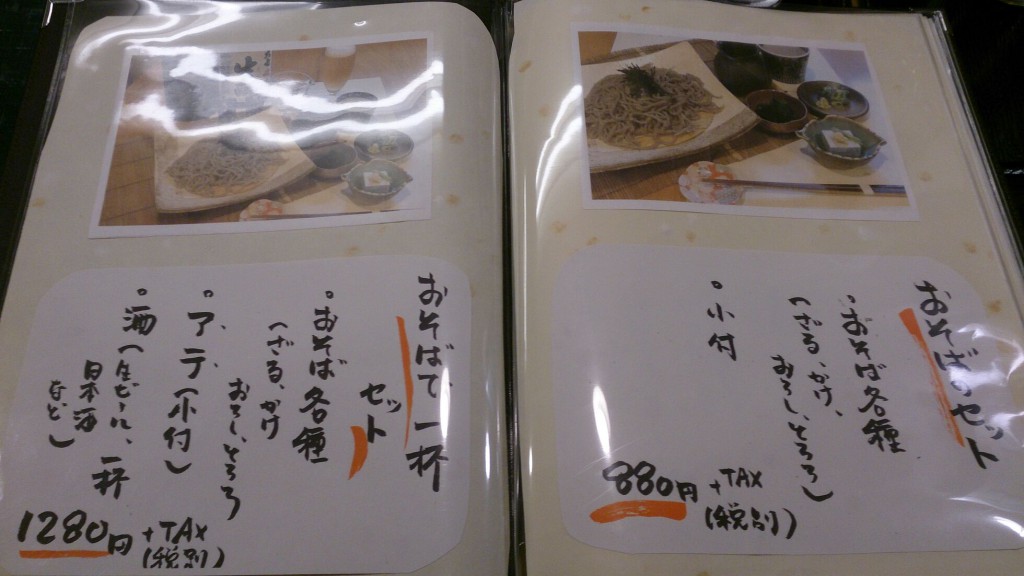 おそばのセット
・おそば各種
(ざる、かけ、
おろし、とろろ)
・小付
880円
+TAX
(税別)
おそばで一杯
セット
・おそば各種
(ざる、かけ
おろし、とろろ
・アテ(小付)
・酒(生ビール、一杯
日本酒
など)
1280円
+TAX
(税別)